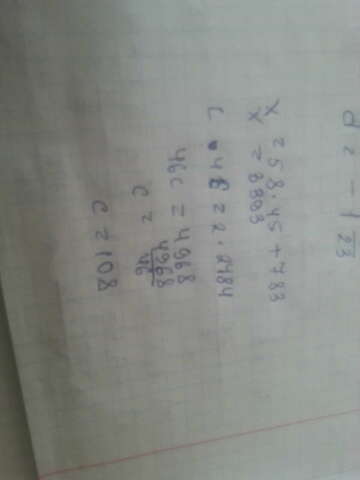 d = - 1 23
x = 58 · 45 + 783
x = 3393
c · 46 = 2 · 2484
46c = 4968
c = 4968/46
c = 108